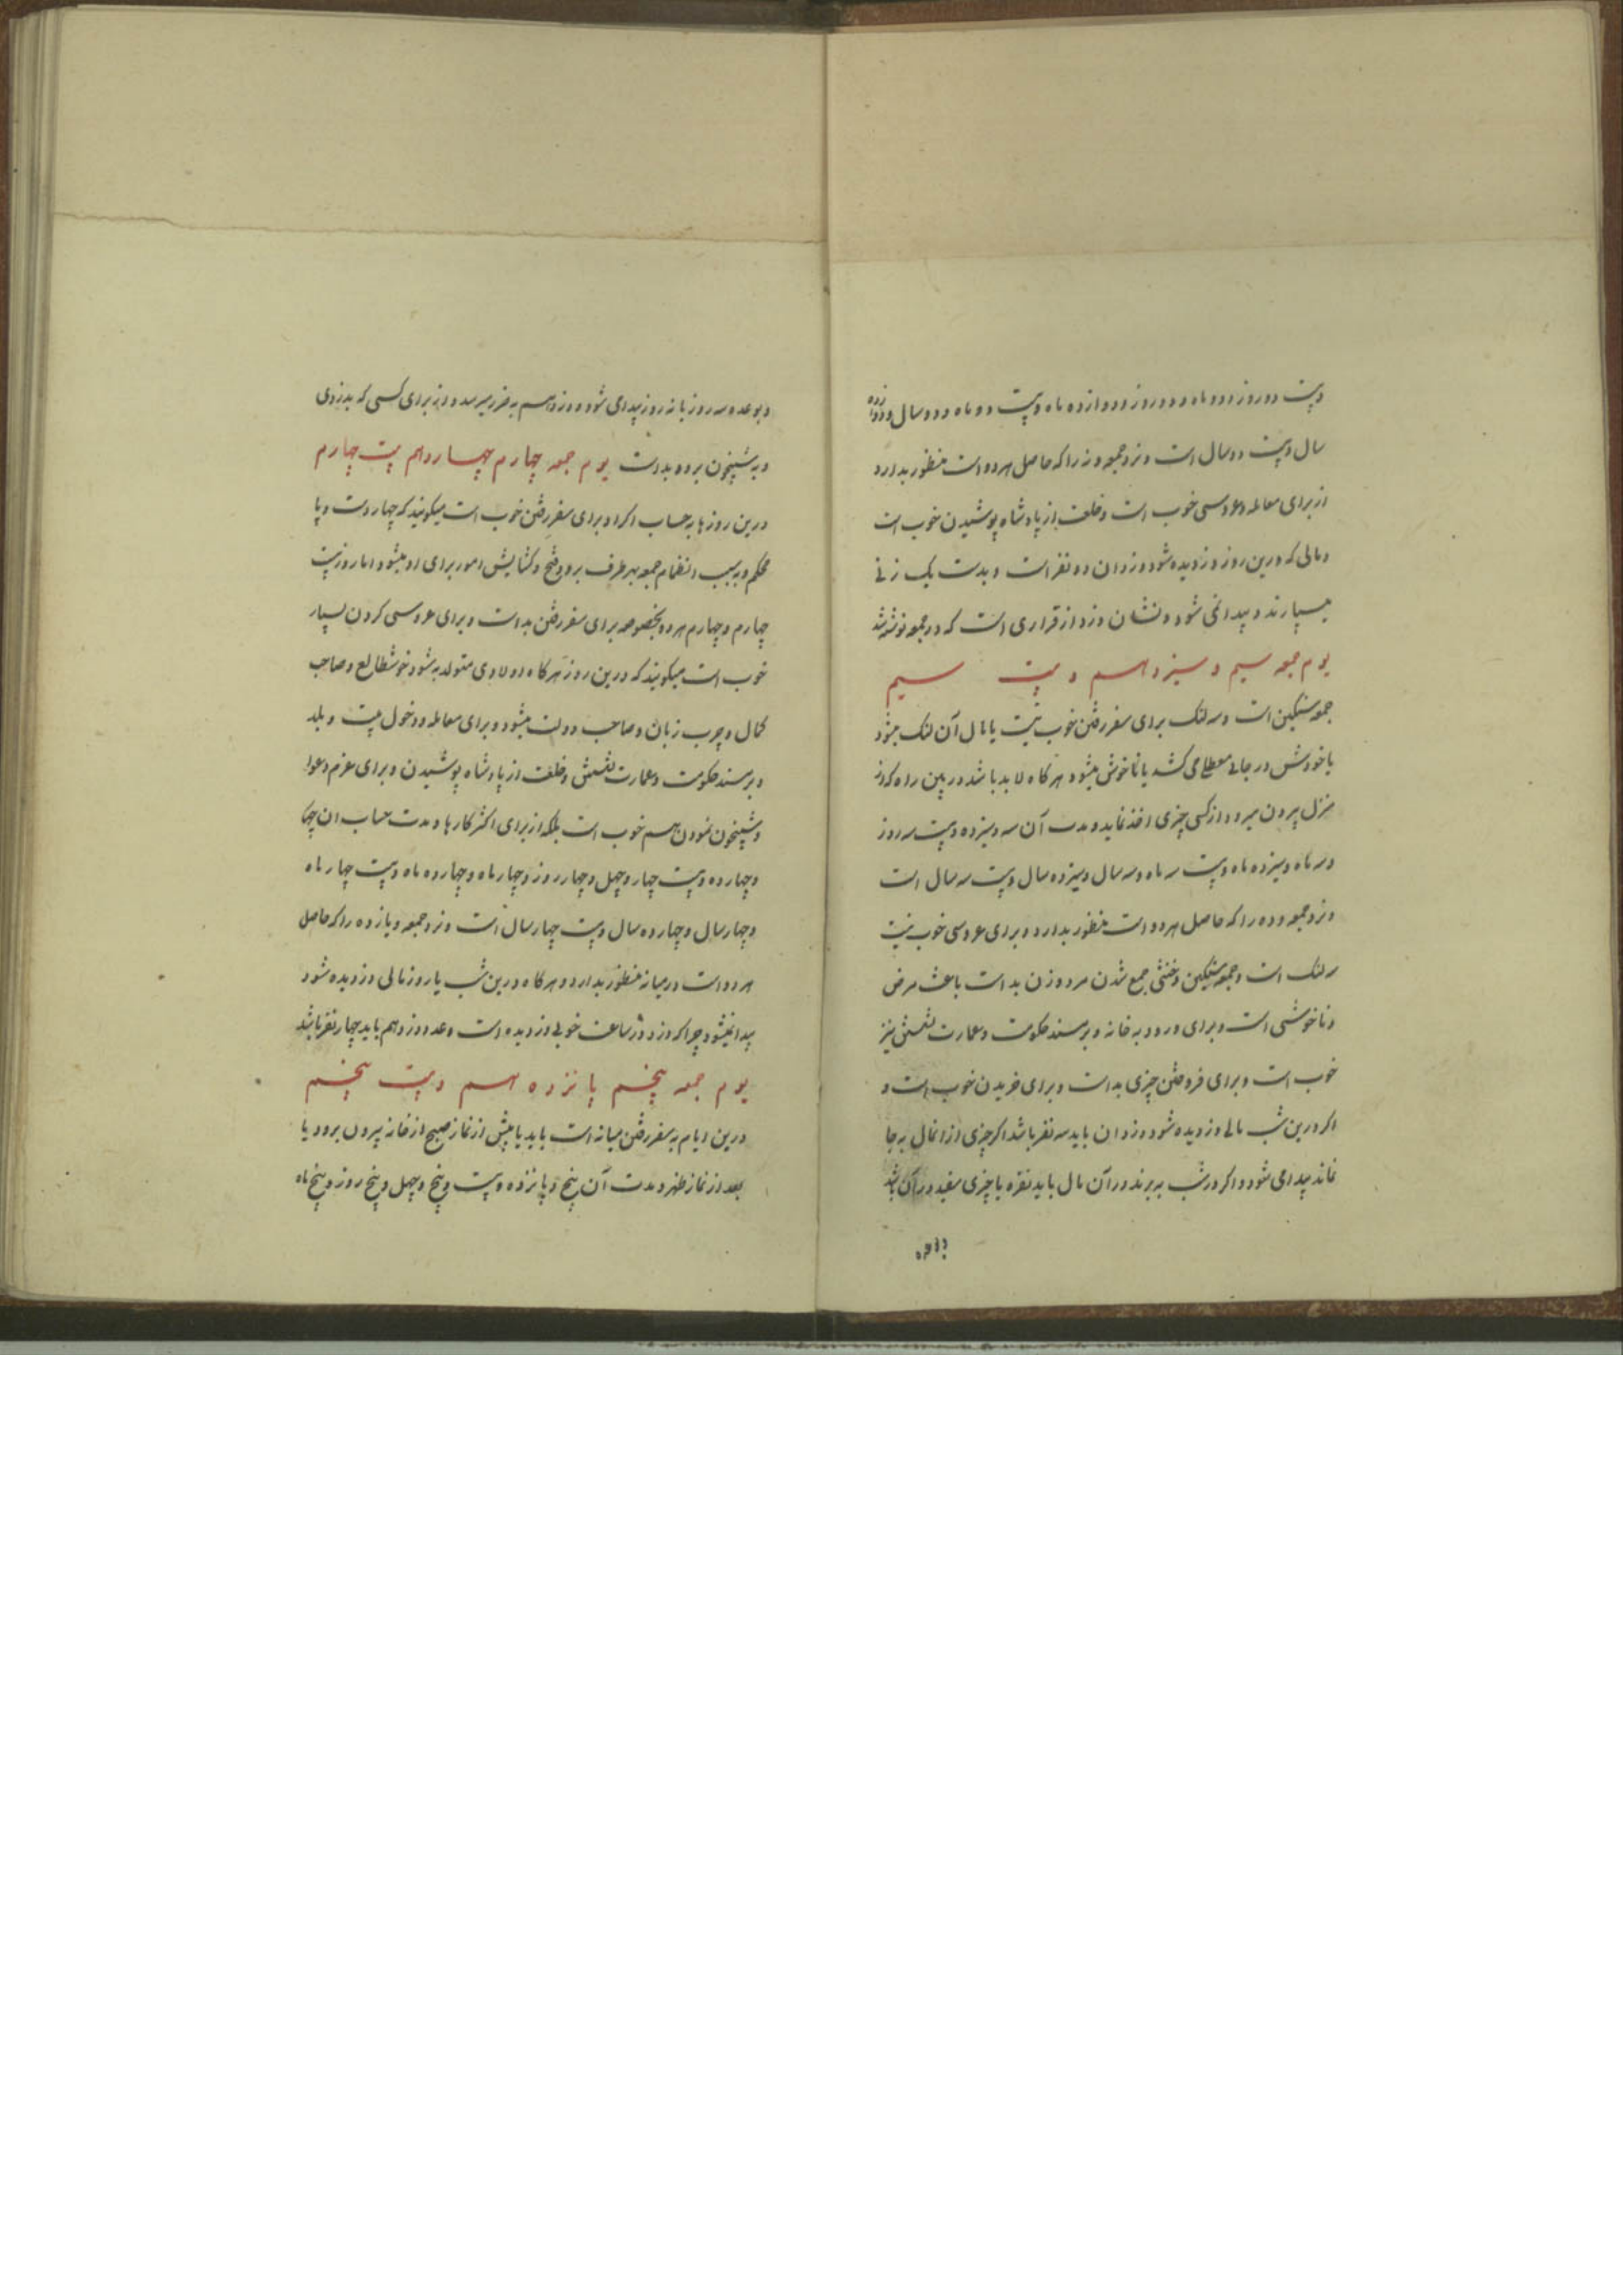 وبیست دو روز و دو ماه و دو روز و دوازده ماه وبیست دو ماه و دو سال و دوازده
سال وبیست دو سال است و نزد جمعه و نه را که حاصل هر دو است منظور بدارد
از برای معامله و عروسی خوب است و خلعت از پادشاه پوشیدن خوب است
و مالی که درین روز دزدیده شود دزدان دو نفر است و بدست یک زنی
میسپارند و پیدا نمی شود و نشان دزد از قراری است که در جمعه نوشته شد
یوم جمعه سیم و سیزدهم و بیست سیم
جمعه سنگین است و سه لنگ برای سفر رفتن خوب نیست یا مال آن لنگ میشود
یا خودش در جائی معطل می کشد یا ناخوش میشود هر کاه لابد باشد در بین راه که از
منزل بیرون میرود از کسی چیزی اخذ نماید و مدت آن سه و سیزده وبیست سه روز
و سه ماه و سیزده ماه وبیست سه ماه و سه سال و سیزده سال وبیست سه سال است
و نزد جمعه و ده را که حاصل هر دو است منظور بدارد و برای عروسی خوب نیست
سه لنگ است و جمعه سنگین و خنثی جمع شدن مرد و زن بد است باعث مرض
و ناخوشی است و برای ورود به خانه و بر مسند حکومت و عمارت نشستن نیز
خوب است و برای فروختن چیزی بد است و برای خریدن خوب است و
اکر درین شب مالی دزدیده شود دزدان باید سه نفر باشد اکر چیزی از انمال به جا
نماند پیدا می شود و اکر در شب به برند در آن مال باید نقره یا چیزی سفید در آن باشد
و بوعده سه روز یا نه روز پیدا می شود و دزد هم به ضرر میرسد و از برای کسی که بدزدی
و به شبیخون برود بد است یوم جمعه چهارم چهاردهم بیست چهارم
درین روزها به حساب اکراد برای سفر رفتن خوب است میکویند که چهار دست و پا
محکم و به سبب انتظام جمعه بهر طرف برود فتح و کشایش امور برای او میشود اما روز بیست
چهارم و چهارم هر دو بخصوصه برای سفر رفتن بد است و برای عروسی کردن بسیار
خوب است میکویند که درین روز هر کاه اولادی متولد به شود خوشطالع و صاحب
کمال و چرب زبان و صاحب دولت میشود و برای معامله و دخول بیت و بلد
و بر مسند حکومت و عمارت نشستن و خلعت از پادشاه پوشیدن و برای عزم دعوا
و شبیخون نمودن هم خوب است بلکه از برای اکثر کارها و مدت حساب ان چهار
و چهارده وبیست چهار و چهل و چهار روز و چهار ماه و چهارده ماه وبیست چهار ماه
و چهار سال و چهارده سال وبیست چهار سال است و نزد جمعه و یازده را که حاصل
هر دو است درمیانه منظور بدارد و هر کاه درین شب یا روز مالی دزدیده شود
پیدا نمیشود چرا که دزد در ساعت خوبی دزدیده است و عدد دزد هم باید چهار نفر باشد
یوم جمعه پنجم پانزدهم وبیست پنجم
درین ایام به سفر رفتن میانه است باید یا پیش از نماز صبح از خانه بیرون برود یا
بعد از نماز ظهر و مدت آن پنج و پانزده وبیست و پنج و چهل و پنج روز و پنج ماه